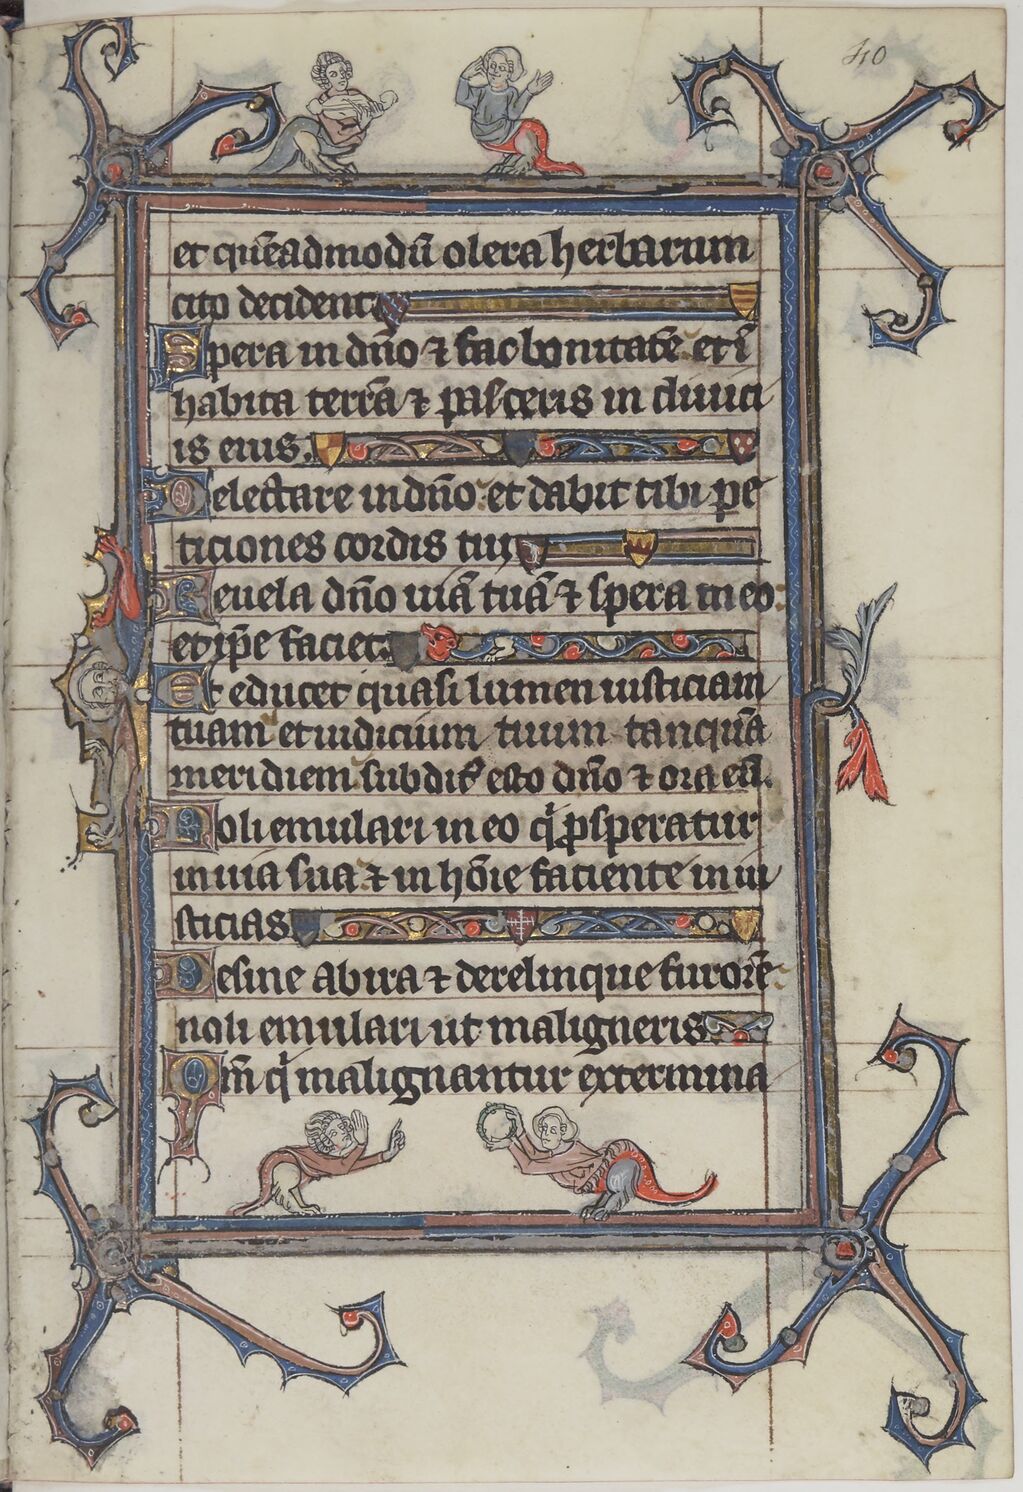 40
et quẽadmodũ olera herbarum
cito decident
Spera in dño ⁊ fac bonitatẽ et ĩ
habita terrã ⁊ pasceris in diuici
is eius.
Delectare in dño et dabit tibi pe
ticiones cordis tui
Reuela dño uiã tuã ⁊ spera in eo
et ip̃e faciet
Et educet quasi lumen iusticiam
tuam et iudicium tuum tanquã
meridiem subdit᷒ esto dño ⁊ ora eũ.
Noli emulari in eo q̇ ꝓsperatur
in uia sua ⁊ in hõie faciente in iu
sticias
Desine ab ira ⁊ derelinque furorẽ
noli emulari ut maligneris
Qm̃ q̇ malignantur extermina